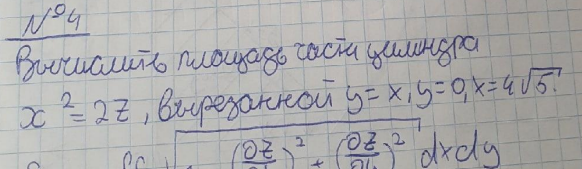 №4
Вычислить площадь части цилиндра
x² = 2z, вырезанной y = x, y = 0, x = 4√5.
(∂z)² + (∂z)² dxdy